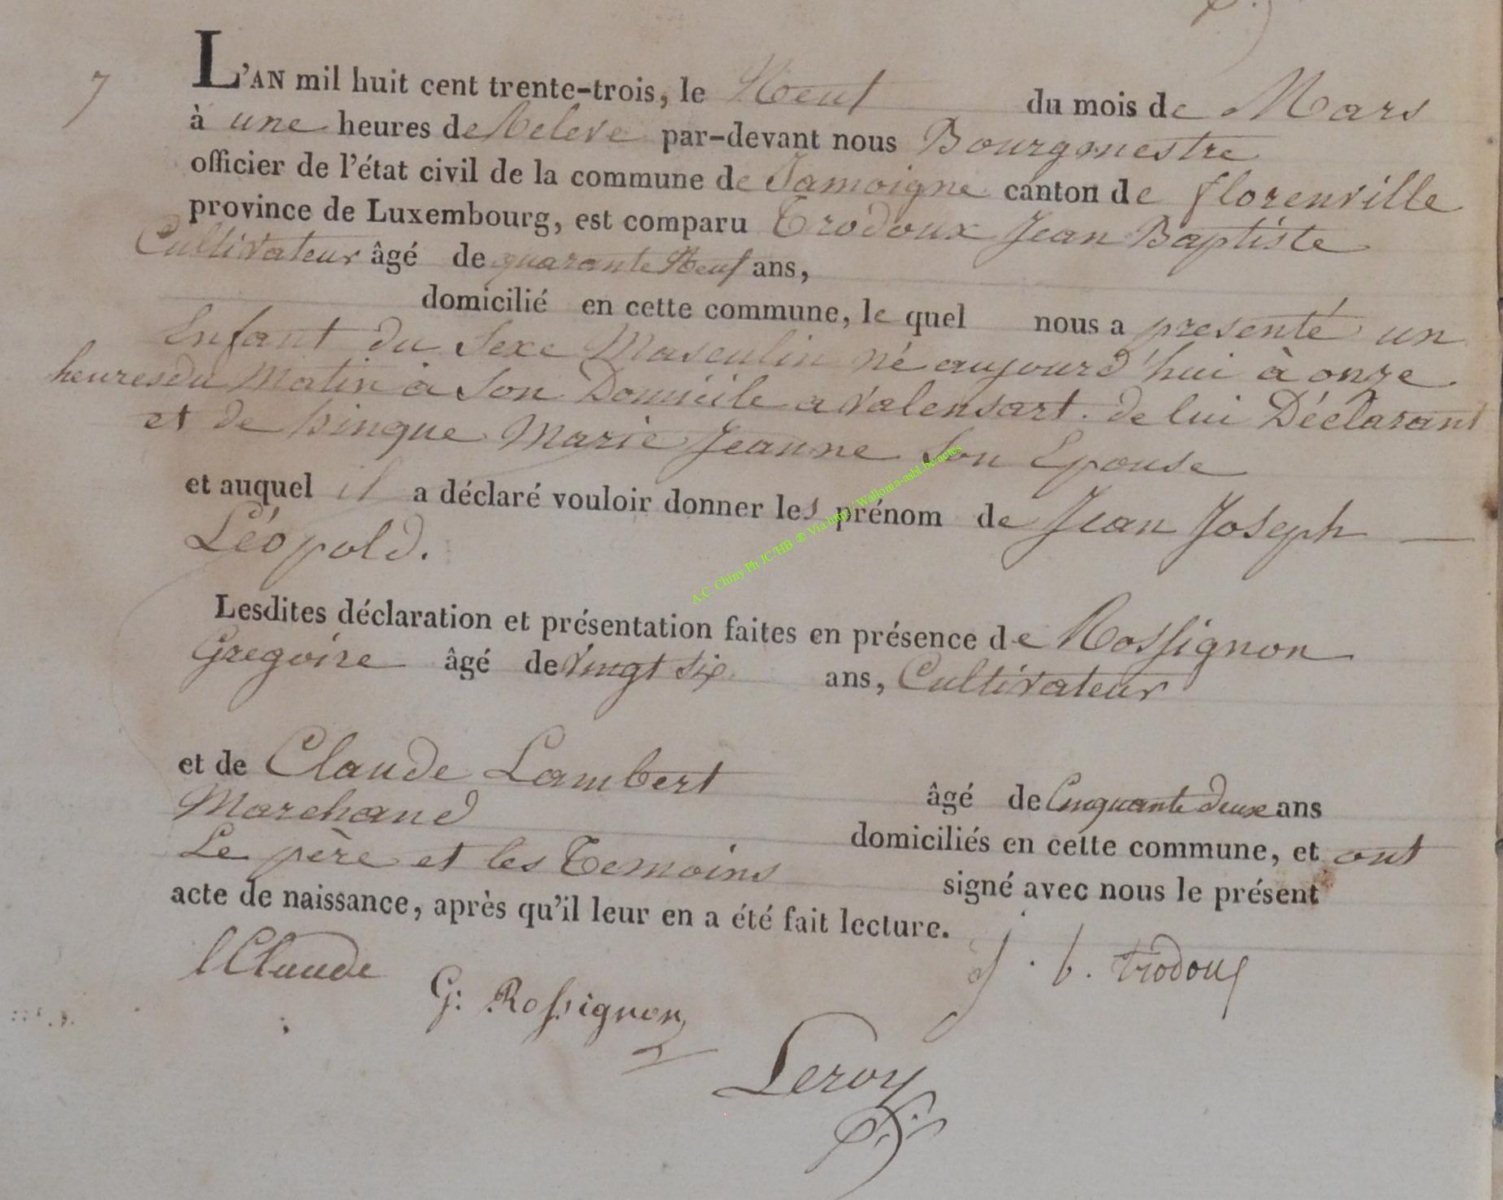 7
L'AN mil huit cent trente-trois, le Neuf du mois de Mars
à une heures de Relevé par-devant nous Bourgmestre
officier de l'état civil de la commune de Jamoigne canton de florenville
province de Luxembourg, est comparu Trodoux Jean Baptiste
Cultivateur âgé de quarante Neuf ans,
domicilié en cette commune, le quel nous a presenté un
Enfant du Sexe Masculin né aujourd'hui à onze
heures du Matin à Son Domicile a Valensart. de lui Déclarant
et de Pinque Marie Jeanne Son Epouse
et auquel il a déclaré vouloir donner les prénom de Jean Joseph
Léopold.
Lesdites déclaration et présentation faites en présence de Rossignon
Gregoire âgé de Vingt Six ans, Cultivateur
et de Claude Lambert âgé de Cinquante deux ans
Marchand domiciliés en cette commune, et ont
Le père et les Temoins signé avec nous le présent
acte de naissance, après qu'il leur en a été fait lecture.
lClaude G: Rossignon j. b. trodoux
Leroy
A.C. Chiny Ph JC HB &